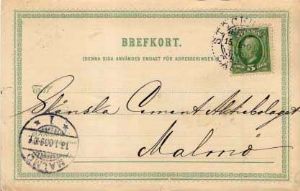 BREFKORT.
(DENNA SIDA ANVÄNDES ENDAST FÖR ADRESSERINGEN)
5
Skånska Cement Aktiebolaget
Malmö